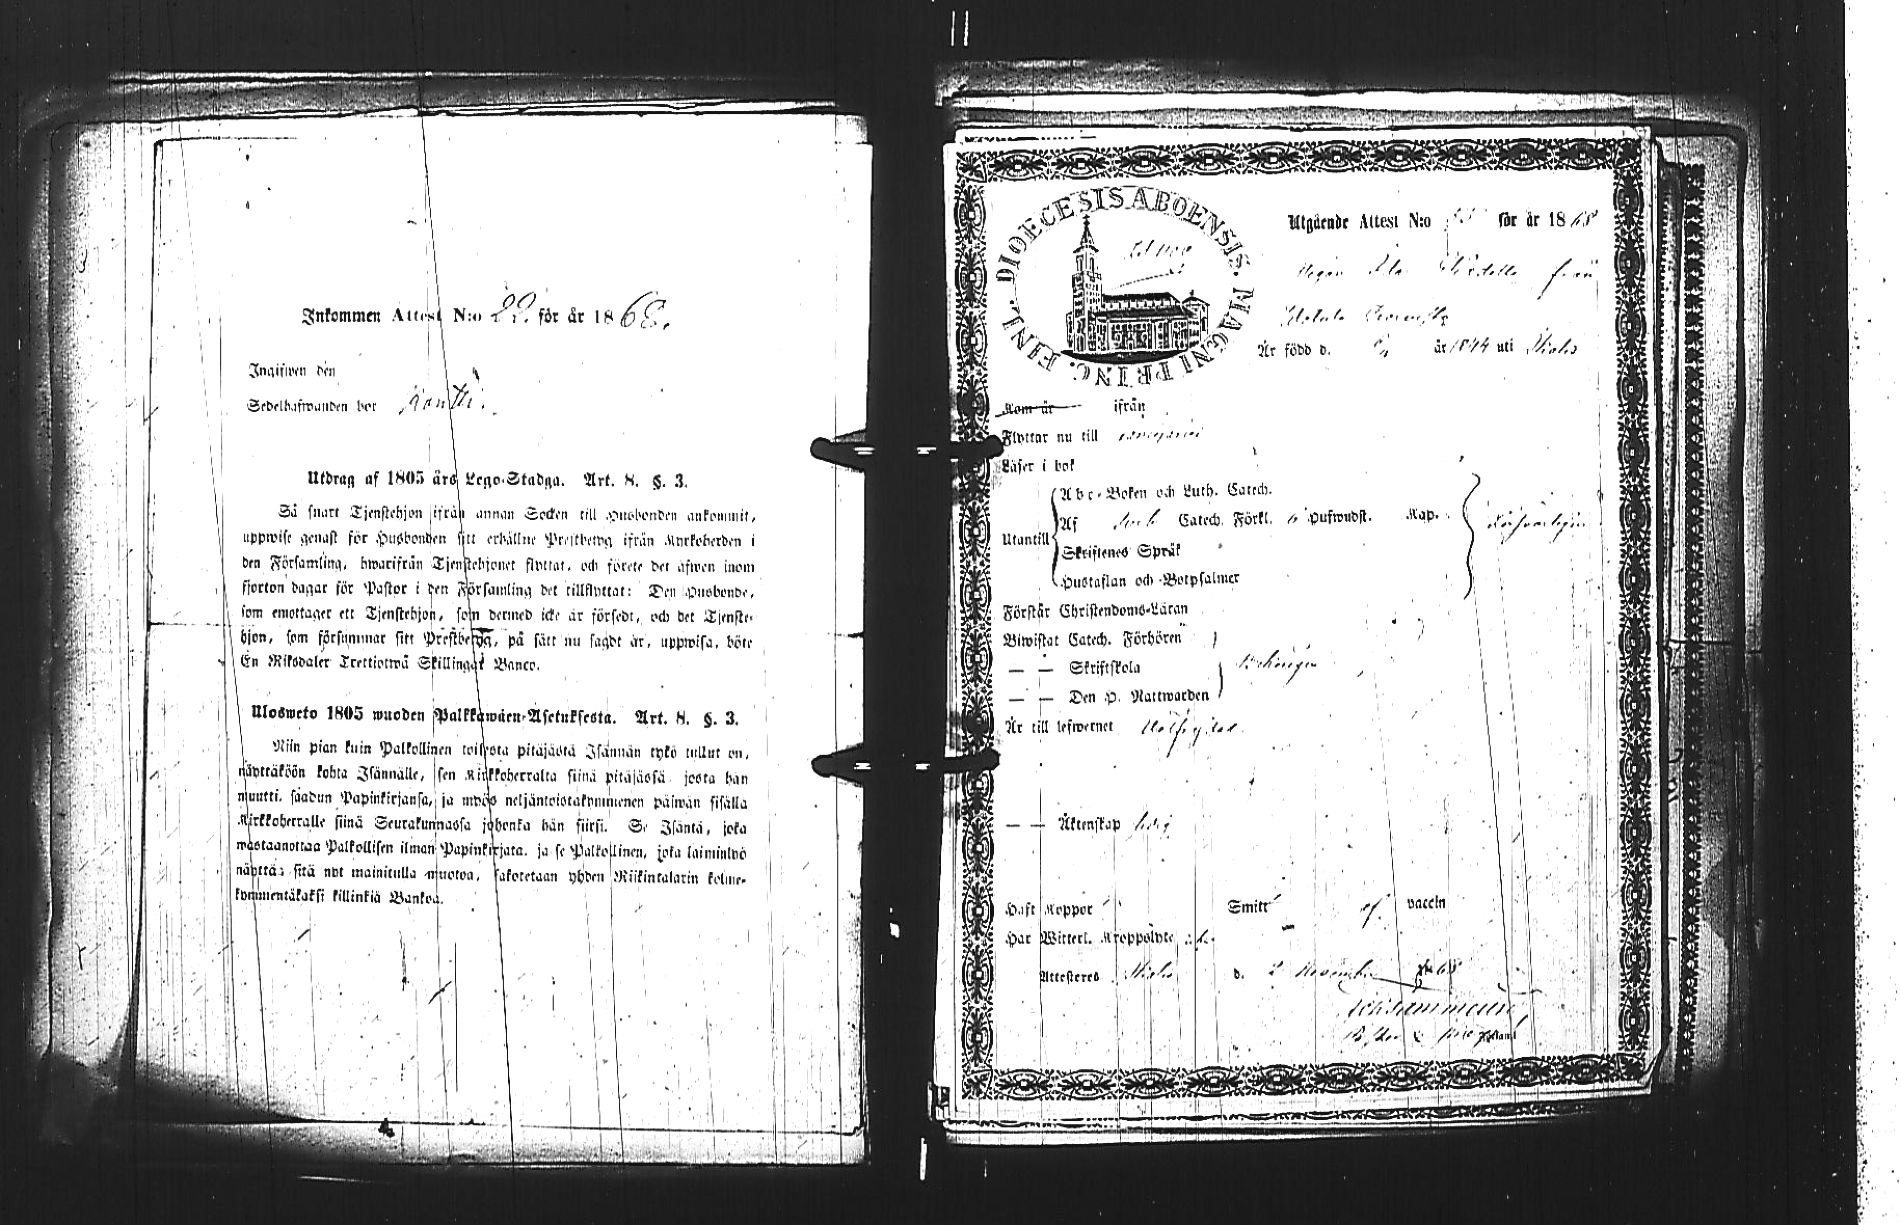 Inkommen Attest N:o 22. för år 1868.
Ingifwen den
Sedelhafwanden bor
Utdrag af 1805 års Lego-Stadga. Art. 8. §. 3.
Så snart Tjenstehjon ifrån annan Socken till Husbonden ankommit,
uppwise genast för Husbonden sitt erhållne Prestbetyg ifrån Kyrkoherden i
den Församling, hwarifrån Tjenstehjonet flyttat, och förete det äfwen inom
fjorton dagar för Pastor i den Församling det tillflyttat: Den Husbonde,
som emottager ett Tjenstehjon, som dermed icke är försedt, och det Tjenste-
hjon, som försummar sitt Prestbetyg, på sätt nu sagdt är, uppwisa, böte
En Riksdaler Trettiotwå Skillingar Banco.
Ulosweto 1805 wuoden Palkkawäen-Asetuksesta. Art. 8. §. 3.
Niin pian kuin Palkollinen toisesta pitäjästä Isännän tykö tullut on,
näyttäköön kohta Isännälle, sen Kirkkoherralta siinä pitäjässä josta hän
muutti, saadun Papinkirjansa, ja myös neljäntoistakymmenen päiwän sisällä
Kirkkoherralle siinä Seurakunnassa johonka hän siirsi. Se Isäntä, joka
wastaanottaa Palkollisen ilman Papinkirjata, ja se Palkollinen, joka laiminlyö
näyttää sitä nyt mainitulla muotoa, sakotetaan yhden Riikintalarin kolme-
kymmentäkaksi killinkiä Bankoa.
DIOECESIS ABOENSIS. MAGNI PRINC. FINL.
Utgående Attest N:o för år 1868
Pigan från
Är född d. år 1844 uti
Kom år ifrån
Flyttar nu till
Läser i bok
Utantill
Abc-Boken och Luth. Catech.
Af Catech. Förkl. Hufwudst. Kap.
Skriftenes Språk
Hustaflan och Botpsalmer
Förstår Christendoms-Läran
Biwistat Catech. Förhören
— — Skriftskola
— — Den H. Nattwarden
Är till lefwernet
— — Äktenskap ledig
Haft Koppor Smitt af vaccin
Har Witterl. Kroppslyte
Attesteras d. 2 November 1868